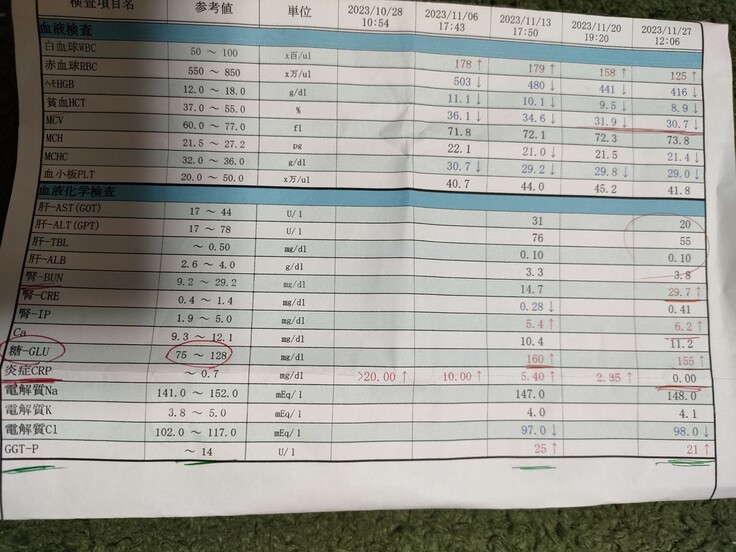 検査項目名 参考値 単位 2023/10/28 10:54 2023/11/06 17:43 2023/11/13 17:50 2023/11/20 19:20 2023/11/27 12:06
血液検査
白血球WBC 50 ～ 100 x百/ul 178 ↑ 179 ↑ 158 ↑ 125 ↑
赤血球RBC 550 ～ 850 x万/ul 503 ↓ 480 ↓ 441 ↓ 416 ↓
ﾍﾓHGB 12.0 ～ 18.0 g/dl 11.1 ↓ 10.1 ↓ 9.5 ↓ 8.9 ↓
貧血HCT 37.0 ～ 55.0 % 36.1 ↓ 34.6 ↓ 31.9 ↓ 30.7 ↓
MCV 60.0 ～ 77.0 fl 71.8 72.1 72.3 73.8
MCH 21.5 ～ 27.2 pg 22.1 21.0 ↓ 21.5 21.4 ↓
MCHC 32.0 ～ 36.0 g/dl 30.7 ↓ 29.2 ↓ 29.8 ↓ 29.0 ↓
血小板PLT 20.0 ～ 50.0 x万/ul 40.7 44.0 45.2 41.8
血液化学検査
肝-AST(GOT) 17 ～ 44 U/l 31 20
肝-ALT(GPT) 17 ～ 78 U/l 76 55
肝-TBL ～ 0.50 mg/dl 0.10 0.10
肝-ALB 2.6 ～ 4.0 g/dl 3.3 3.8
腎-BUN 9.2 ～ 29.2 mg/dl 14.7 29.7 ↑
腎-CRE 0.4 ～ 1.4 mg/dl 0.28 ↓ 0.41
腎-IP 1.9 ～ 5.0 mg/dl 5.4 ↑ 6.2 ↑
Ca 9.3 ～ 12.1 mg/dl 10.4 11.2
糖-GLU 75 ～ 128 mg/dl 160 ↑ 155 ↑
炎症CRP ～ 0.7 mg/dl >20.00 ↑ 10.00 ↑ 5.40 ↑ 2.35 ↑ 0.00
電解質Na 141.0 ～ 152.0 mEq/l 147.0 148.0
電解質K 3.8 ～ 5.0 mEq/l 4.0 4.1
電解質Cl 102.0 ～ 117.0 mEq/l 97.0 ↓ 98.0 ↓
GGT-P ～ 14 U/l 25 ↑ 21 ↑